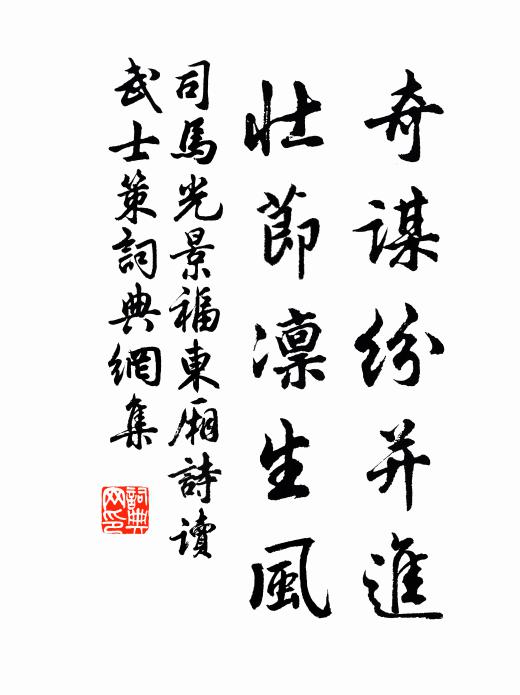 奇謀紛并進
壮節凛生風
司馬光景福東厢詩讀
武士策詞典網集
詞典网印